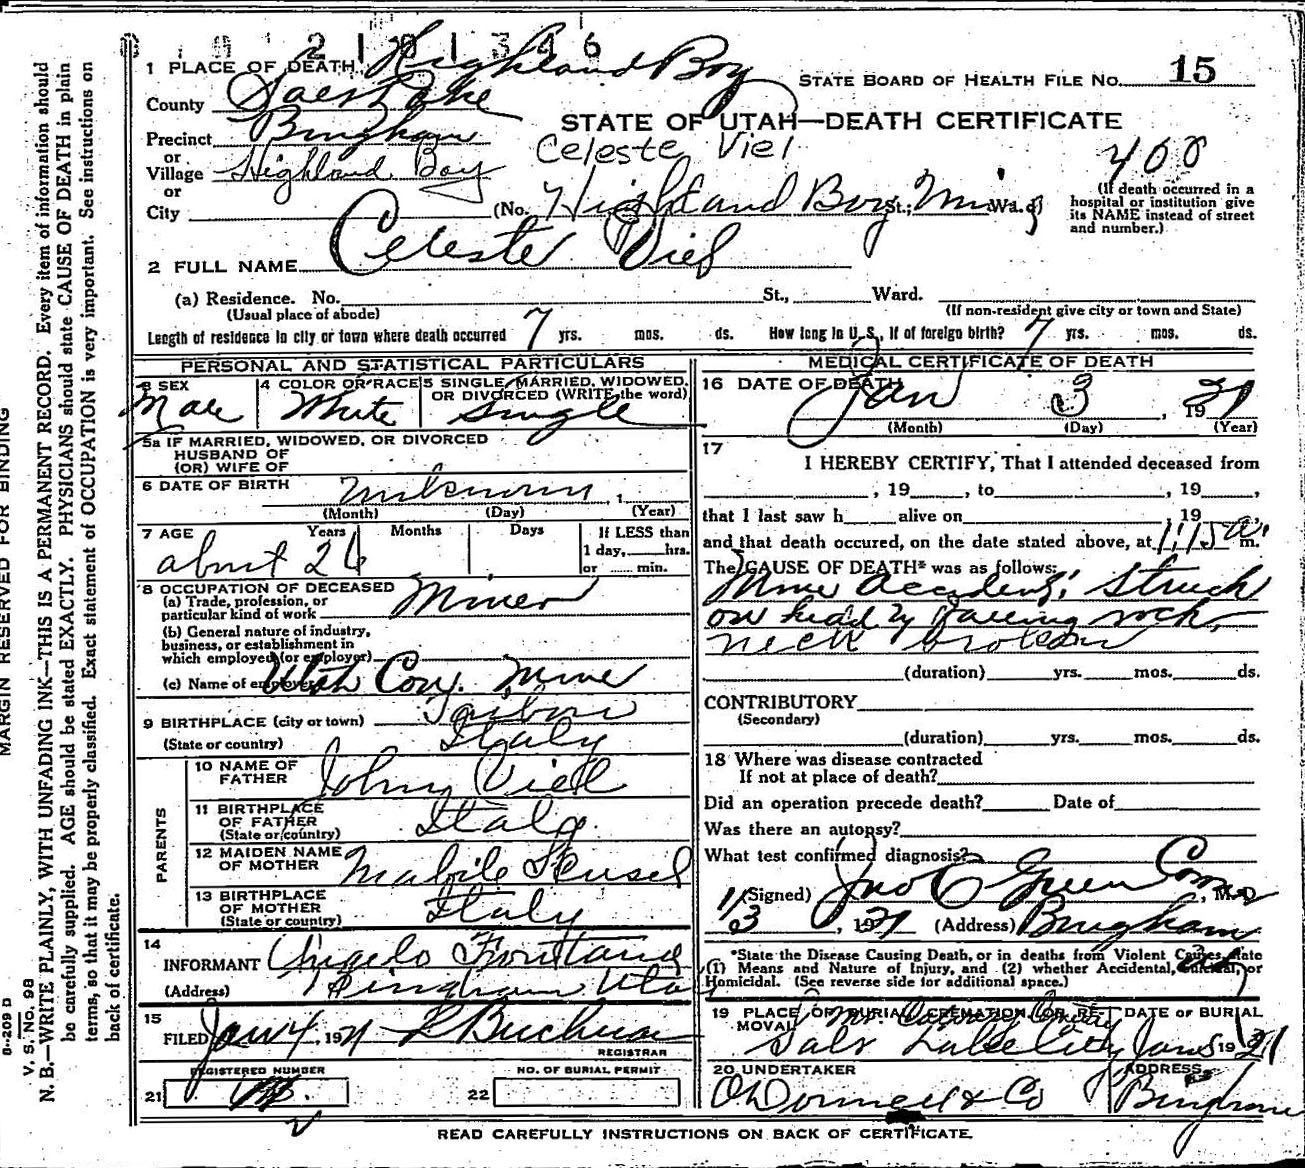 2 1 0 1 3 4 6
1 PLACE OF DEATH Highland Boy
STATE BOARD OF HEALTH FILE No. 15
County Salt Lake
STATE OF UTAH—DEATH CERTIFICATE
Precinct Bingham
Celeste Viel
400
or
Village Highland Boy
or
City (No. Highland Boy St.; Ward)
(If death occurred in a
hospital or institution give
its NAME instead of street
and number.)
2 FULL NAME Celeste Viel
(a) Residence. No. St., Ward.
(Usual place of abode)
(If non-resident give city or town and State)
Length of residence in city or town where death occurred 7 yrs. mos. ds. How long in U. S., if of foreign birth? 7 yrs. mos. ds.
PERSONAL AND STATISTICAL PARTICULARS
3 SEX
Male
4 COLOR OR RACE
White
5 SINGLE, MARRIED, WIDOWED,
OR DIVORCED (WRITE the word)
Single
5a IF MARRIED, WIDOWED, OR DIVORCED
HUSBAND OF
(OR) WIFE OF
6 DATE OF BIRTH Unknown, 1
(Month) (Day) (Year)
7 AGE Years Months Days
about 26
If LESS than
1 day, hrs.
or min.
8 OCCUPATION OF DECEASED
(a) Trade, profession, or
particular kind of work Miner
(b) General nature of industry,
business, or establishment in
which employed (or employer)
(c) Name of employer Utah Con. Mine
9 BIRTHPLACE (city or town)
(State or country) Italy
PARENTS
10 NAME OF
FATHER John Viel
11 BIRTHPLACE
OF FATHER
(State or country) Italy
12 MAIDEN NAME
OF MOTHER Mabile
13 BIRTHPLACE
OF MOTHER
(State or country) Italy
14
INFORMANT Angelo
(Address) Bingham Utah
15
FILED Jan 4, 1921
REGISTRAR
REGISTERED NUMBER
21
NO. OF BURIAL PERMIT
22
MEDICAL CERTIFICATE OF DEATH
16 DATE OF DEATH Jan 3, 1921
(Month) (Day) (Year)
17
I HEREBY CERTIFY, That I attended deceased from
, 19 , to , 19 ,
that I last saw h alive on 19
and that death occured, on the date stated above, at 1:15 a. m.
The CAUSE OF DEATH* was as follows:
Mine accident; Struck
on head by falling rock,
neck broken
(duration) yrs. mos. ds.
CONTRIBUTORY
(Secondary)
(duration) yrs. mos. ds.
18 Where was disease contracted
If not at place of death?
Did an operation precede death? Date of
Was there an autopsy?
What test confirmed diagnosis?
(Signed) Jno C Green, M. D
1/3, 1921 (Address) Bingham
*State the Disease Causing Death, or in deaths from Violent Causes, state
(1) Means and Nature of Injury, and (2) whether Accidental, Suicidal, or
Homicidal. (See reverse side for additional space.)
19 PLACE OF BURIAL, CREMATION OR RE-
MOVAL
Salt Lake City
DATE OF BURIAL
Jan 5 1921
20 UNDERTAKER
O'Donnell & Co
ADDRESS
Bingham
READ CAREFULLY INSTRUCTIONS ON BACK OF CERTIFICATE.
MARGIN RESERVED FOR BINDING
V. S. NO. 98
N. B.—WRITE PLAINLY, WITH UNFADING INK—THIS IS A PERMANENT RECORD. Every item of information should
be carefully supplied. AGE should be stated EXACTLY. PHYSICIANS should state CAUSE OF DEATH in plain
terms, so that it may be properly classified. Exact statement of OCCUPATION is very important. See instructions on
back of certificate.